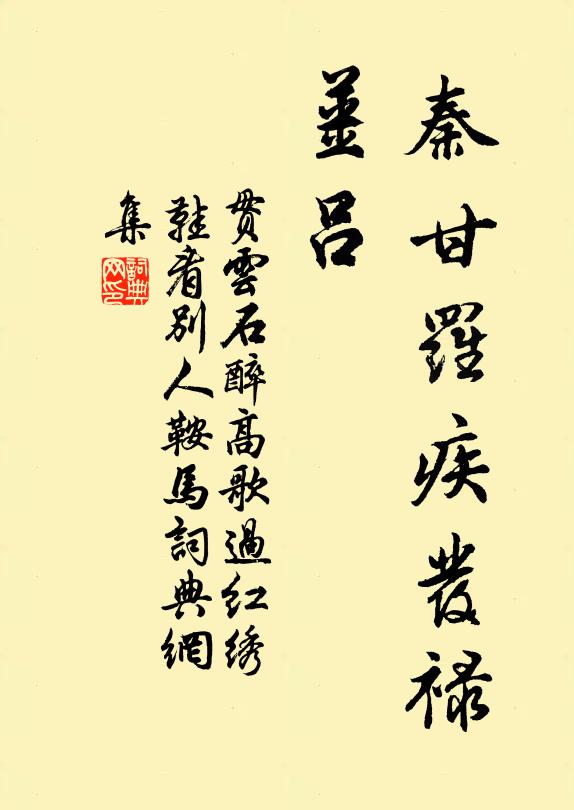 秦甘羅疾發祿
薑呂
貫雲石醉高歌過紅綉
鞋看別人鞍馬詞典網
集
詞典网印